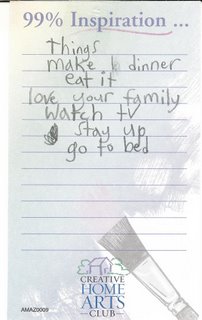 99% Inspiration ...
Things
make dinner
eat it
love your family
watch tv
stay up
go to bed
CREATIVE
HOME
ARTS
CLUB
AMAZ0009